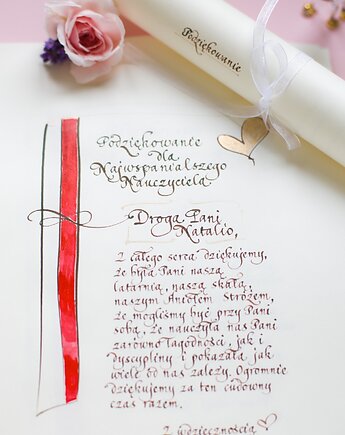 Podziękowanie
Podziękowanie
dla
Najwspanialszego
Nauczyciela
Droga Pani
Natalio,
Z całego serca dziękujemy,
że była Pani naszą
latarnią, naszą skałą,
naszym Aniołem Stróżem,
że mogliśmy być przy Pani
sobą, że nauczyła nas Pani
zarówno łagodności, jak i
dyscypliny i pokazała jak
wiele od nas zależy. Ogromnie
dziękujemy za ten cudowny
czas razem.
Z wdzięcznością